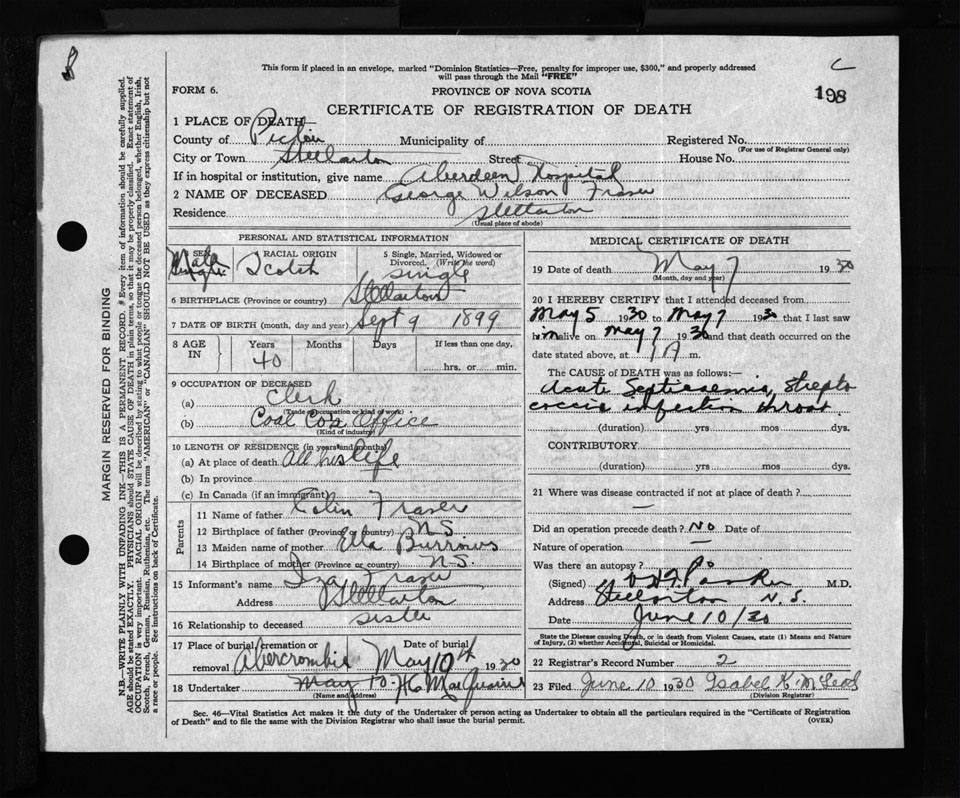 This form if placed in an envelope, marked "Dominion Statistics—Free, penalty for improper use, $300," and properly addressed
will pass through the Mail "FREE"
C
198
FORM 6.
PROVINCE OF NOVA SCOTIA
CERTIFICATE OF REGISTRATION OF DEATH
1 PLACE OF DEATH—
County of Pictou Municipality of Registered No.
(For use of Registrar General only)
City or Town Stellarton Street House No.
If in hospital or institution, give name Aberdeen Hospital
2 NAME OF DECEASED George Wilson Fraser
Residence Stellarton
(Usual place of abode)
PERSONAL AND STATISTICAL INFORMATION
SEX Male Single
RACIAL ORIGIN Scotch
5 Single, Married, Widowed or Divorced. (Write the word) single
6 BIRTHPLACE (Province or country) Stellarton
7 DATE OF BIRTH (month, day and year) Sept 9 1899
8 AGE IN Years 40 Months Days If less than one day, hrs. or min.
9 OCCUPATION OF DECEASED
(a) Clerk
(Trade occupation or kind of work)
(b) Coal Co's Office
(Kind of industry)
10 LENGTH OF RESIDENCE (in years and months)
(a) At place of death All his life
(b) In province
(c) In Canada (if an immigrant)
Parents
11 Name of father Colin Fraser
12 Birthplace of father (Province or country) N.S.
13 Maiden name of mother Ella Burrows
14 Birthplace of mother (Province or country) N.S.
15 Informant's name Fraser
Address Stellarton
16 Relationship to deceased sister
17 Place of burial, cremation or removal Abercrombie Date of burial May 10th 1930
18 Undertaker May 10
(Name and address)
MEDICAL CERTIFICATE OF DEATH
19 Date of death May 7 1930
(Month, day and year)
20 I HEREBY CERTIFY that I attended deceased from
May 5 1930 to May 7 1930 that I last saw
him alive on May 7 1930 and that death occurred on the
date stated above, at m.
The CAUSE OF DEATH was as follows:—
Acute Septicaemia, Strepto
coccic infection throat.
(duration) yrs mos dys.
CONTRIBUTORY
(duration) yrs mos dys.
21 Where was disease contracted if not at place of death?
—
Did an operation precede death? No Date of
Nature of operation —
Was there an autopsy? No
(Signed) M.D.
Address Stellarton N.S.
Date June 10/30
State the Disease causing Death, or in death from Violent Causes, state (1) Means and Nature
of Injury, (2) whether Accidental, Suicidal or Homicidal.
22 Registrar's Record Number 2
23 Filed June 10 1930 Isabel K. McLeod
(Division Registrar)
Sec. 46—Vital Statistics Act makes it the duty of the Undertaker or person acting as Undertaker to obtain all the particulars required in the "Certificate of Registration
of Death" and to file the same with the Division Registrar who shall issue the burial permit.
(OVER)
MARGIN RESERVED FOR BINDING
N.B.—WRITE PLAINLY WITH UNFADING INK—THIS IS A PERMANENT RECORD. Every item of information should be carefully supplied.
AGE should be stated EXACTLY. PHYSICIANS should STATE CAUSE OF DEATH in plain terms, so that it may be properly classified. Exact statement of
OCCUPATION is very important. RACIAL ORIGIN will be described by stating to what people or tongue the deceased person belonged, whether English, Irish,
Scotch, French, German, Russian, Ruthenian, etc. The terms "AMERICAN" or "CANADIAN" SHOULD NOT BE USED as they express citizenship but not
a race or people. See instructions on back of Certificate.